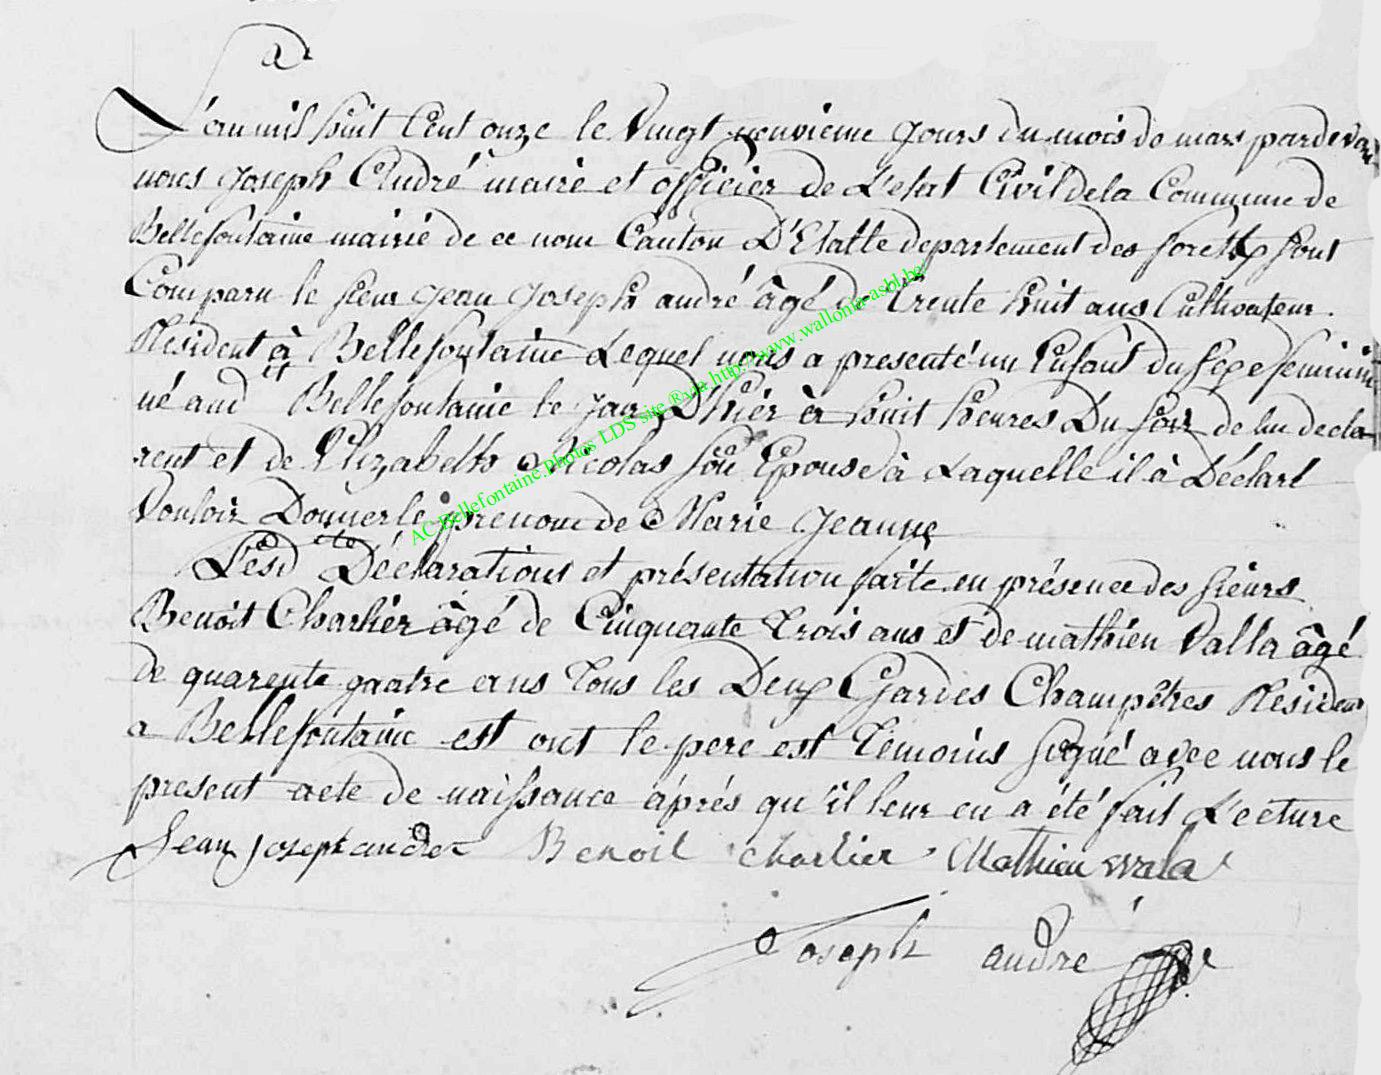 L'an mil huit Cent onze le Vingt neuvieme Jours du mois de mars pardevan
nous Joseph André maire et officier de L'etat Civil dela Commune de
Bellefontaine mairie de ce nom Canton D'Etalle departement des forets sont
Comparu le sieur Jean Joseph andré âgé de Trente huit ans Cultivateur.
Resident à Bellefontaine Lequel nous a presenté un Enfant du sexe feminin
né aud Bellefontaine le Jour D'hier à huit heures Du soir de lui decla
rent et de Elizabeth Nicolas son Epouse à Laquelle il à Déclaré
Vouloir Donner le prenom de Marie Jeanne
Lesd Déclarations et présentation faite en présence des sieurs
Benoit Charlier âgé de Cinquante Trois ans et de mathieu Valla âgé
de quarente quatre ans Tous les Deux Gardes Champêtres Resident
a Bellefontaine est ont le pere est Témoins signé avec nous le
present acte de naissance après qu'il leur en a été fait Lecture
Jean Joseph andre Benoit Charlier Mathieu wala
Joseph andré
AC Bellefontaine Photos LDS site ® via http://www.wallonia-asbl.be/